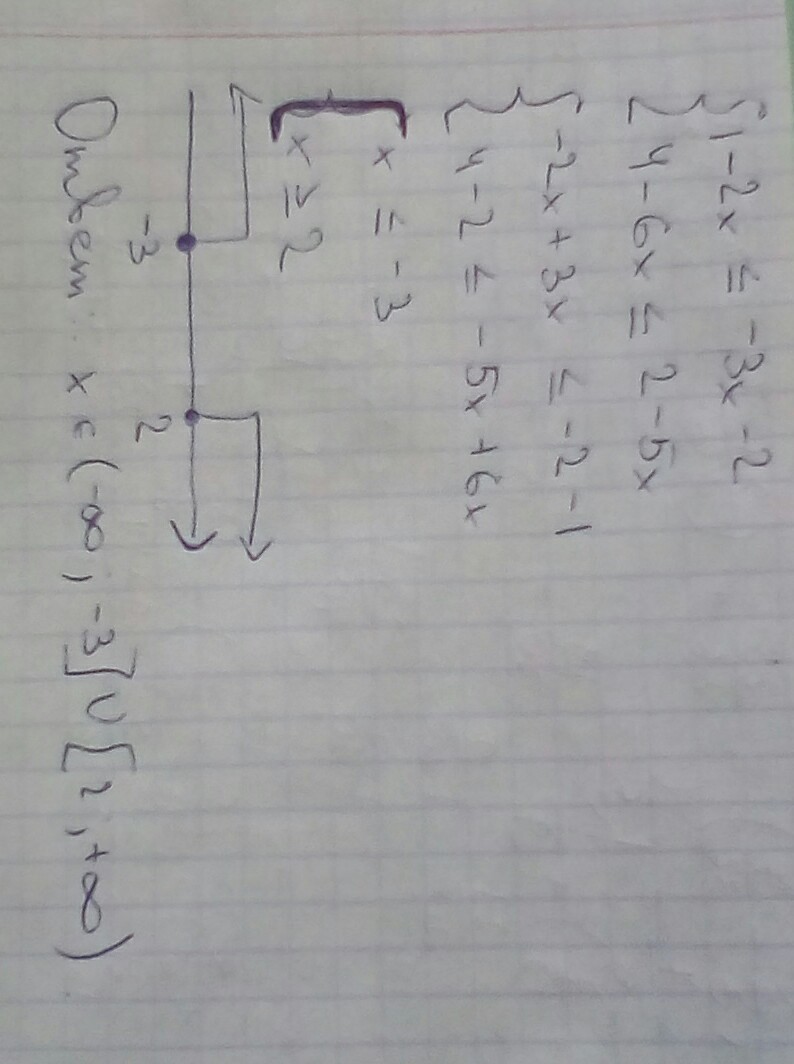 { 1 - 2x ≤ -3x - 2
{ 4 - 6x ≤ 2 - 5x
{ -2x + 3x ≤ -2 - 1
{ 4 - 2 ≤ -5x + 6x
[ x ≤ -3
[ x ≥ 2
-3 2
Ответ: x ∈ (-∞; -3] ∪ [2; +∞)